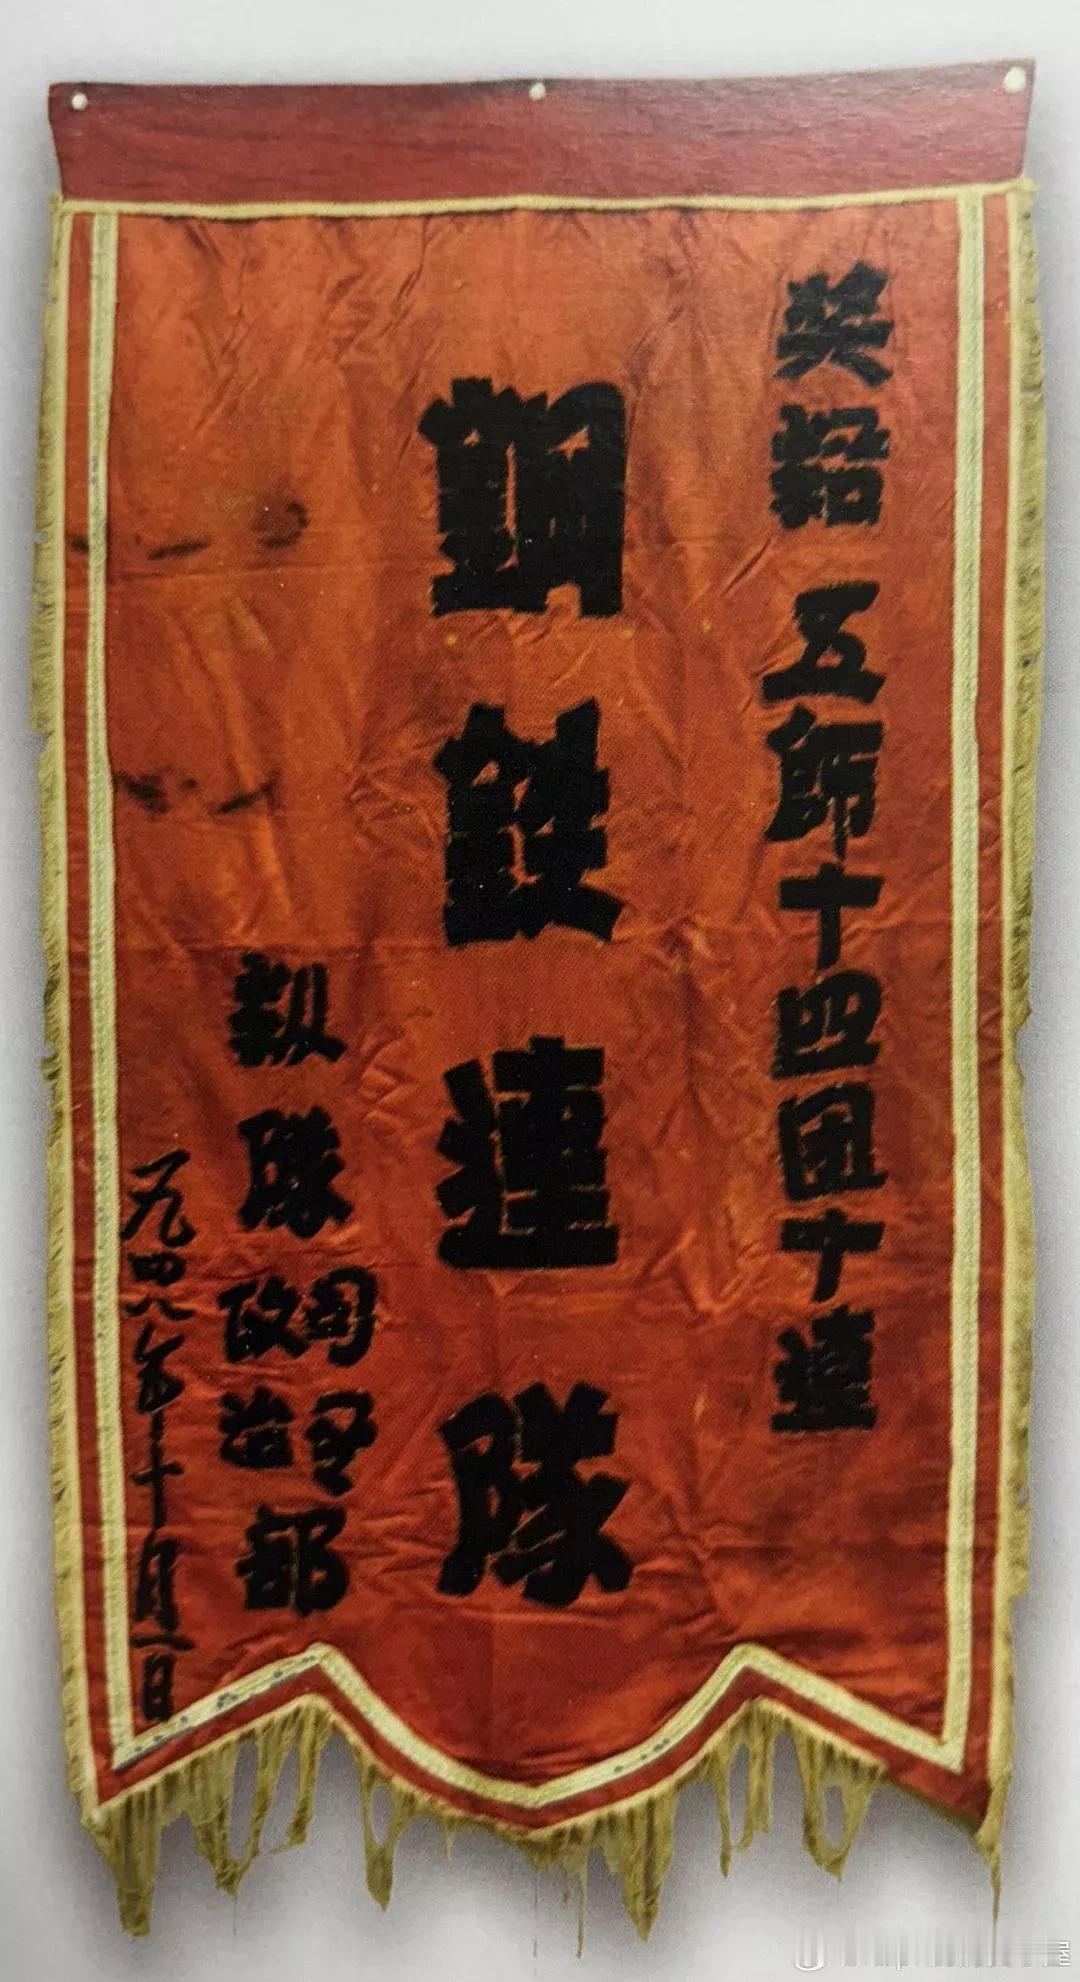 奖給 五师十四团十連
鋼鉄連隊
纵隊司令政治部
一九四八年十月一日